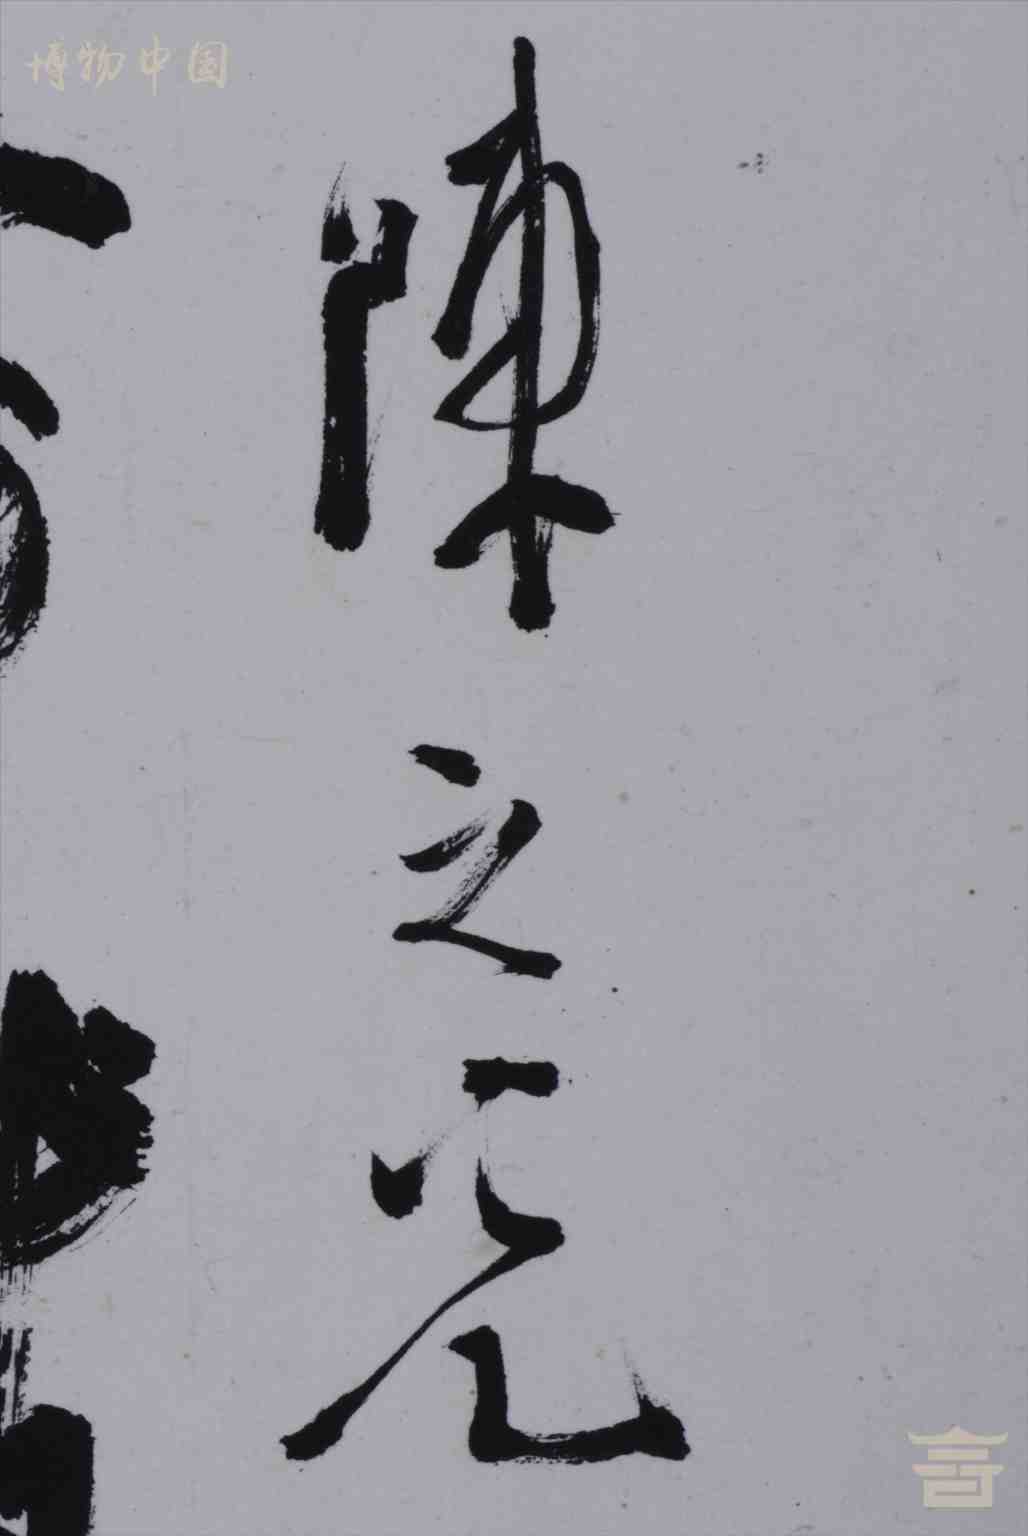 博物中国
陳之元